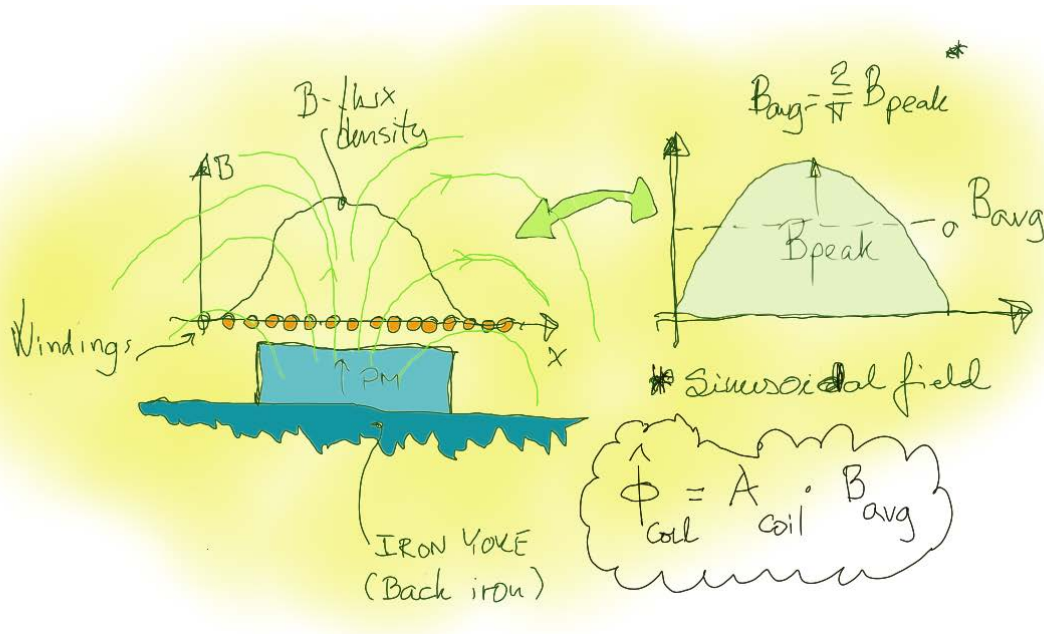 B-flux
density
B
Windings
x
PM
IRON YOKE
(Back iron)
*
Bavg = 2/π Bpeak
Bavg
Bpeak
* Sinusoidal field
ϕ̂coil = Acoil · Bavg